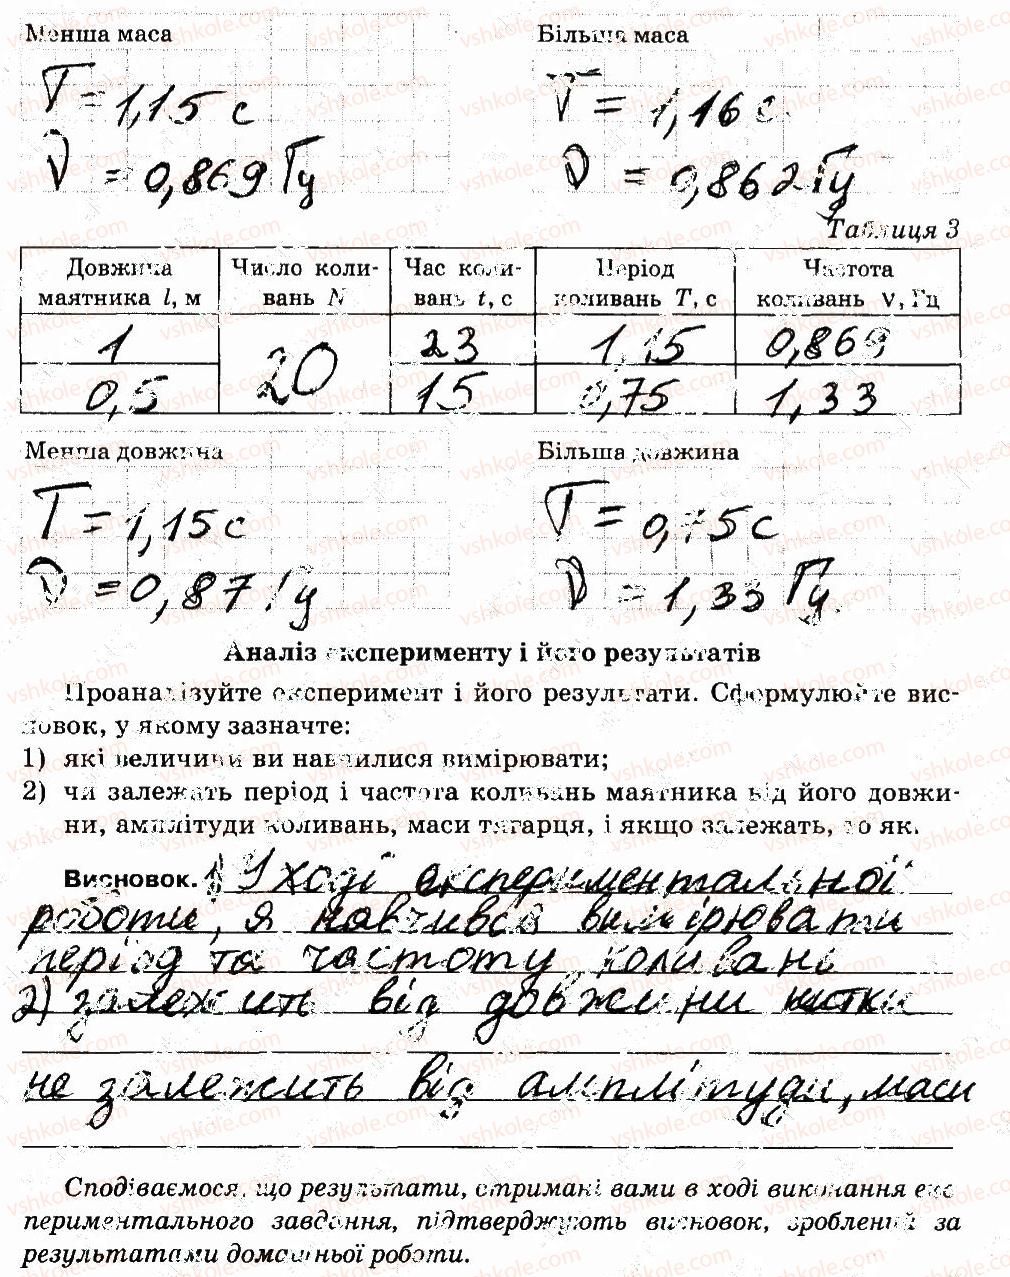 Менша маса Більша маса
T = 1,15 с T = 1,16 с
ν = 0,869 Гц ν = 0,862 Гц
Таблиця 3
Довжина Число коли- Час коли- Період Частота
маятника l, м вань N вань t, с коливань T, с коливань ν, Гц
1 20 23 1,15 0,869
0,5 15 0,75 1,33
Менша довжина Більша довжина
T = 1,15 с T = 0,75 с
ν = 0,87 Гц ν = 1,33 Гц
Аналіз експерименту і його результатів
Проаналізуйте експеримент і його результати. Сформулюйте вис-
новок, у якому зазначте:
1) які величини ви навчилися вимірювати;
2) чи залежать період і частота коливань маятника від його довжи-
ни, амплітуди коливань, маси тягарця, і якщо залежать, то як.
Висновок. 1) У ході експериментальної
роботи, я навчився вимірювати
період та частоту коливань
2) залежить від довжини нитки
не залежить від амплітуди, маси
Сподіваємося, що результати, отримані вами в ході виконання екс
периментального завдання, підтверджують висновок, зроблений за
результатами домашньої роботи.